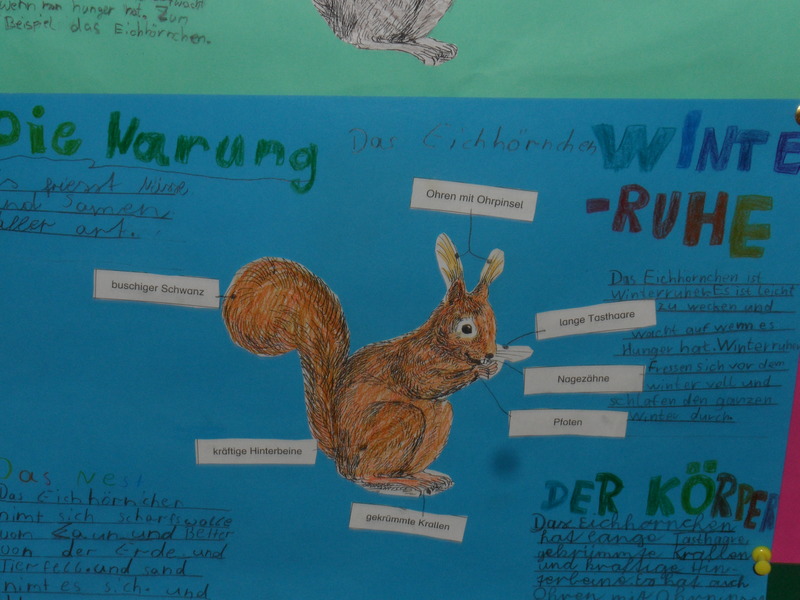 wenn man hunger hat. Zum
Beispiel das Eichhörnchen.
Das Eichhörnchen
Die Narung
friesst Nüsse
und Samen
aller art.
WINTE
-RUHE
Das Eichhörnchen ist
Winterruher. Es ist leicht
zu wecken und
wacht auf wenn es
Hunger hat. Winterruher
Fressen sich vor dem
winter voll und
schlafen den ganzen
Winter durch.
Ohren mit Ohrpinsel
buschiger Schwanz
lange Tasthaare
Nagezähne
Pfoten
kräftige Hinterbeine
gekrümmte Krallen
Das Nest
Das Eichhörnchen
nimt sich schafswolle
vom Zaun und Better
von der Erde und
Tierfell und
nimt es sich und
DER KÖRPER
Das Eichhörnchen
hat lange Tasthaare
gekrümmte Krallen
und kräftige Hin-
terbeine. Es hat auch
Ohren mit Ohrpinsel